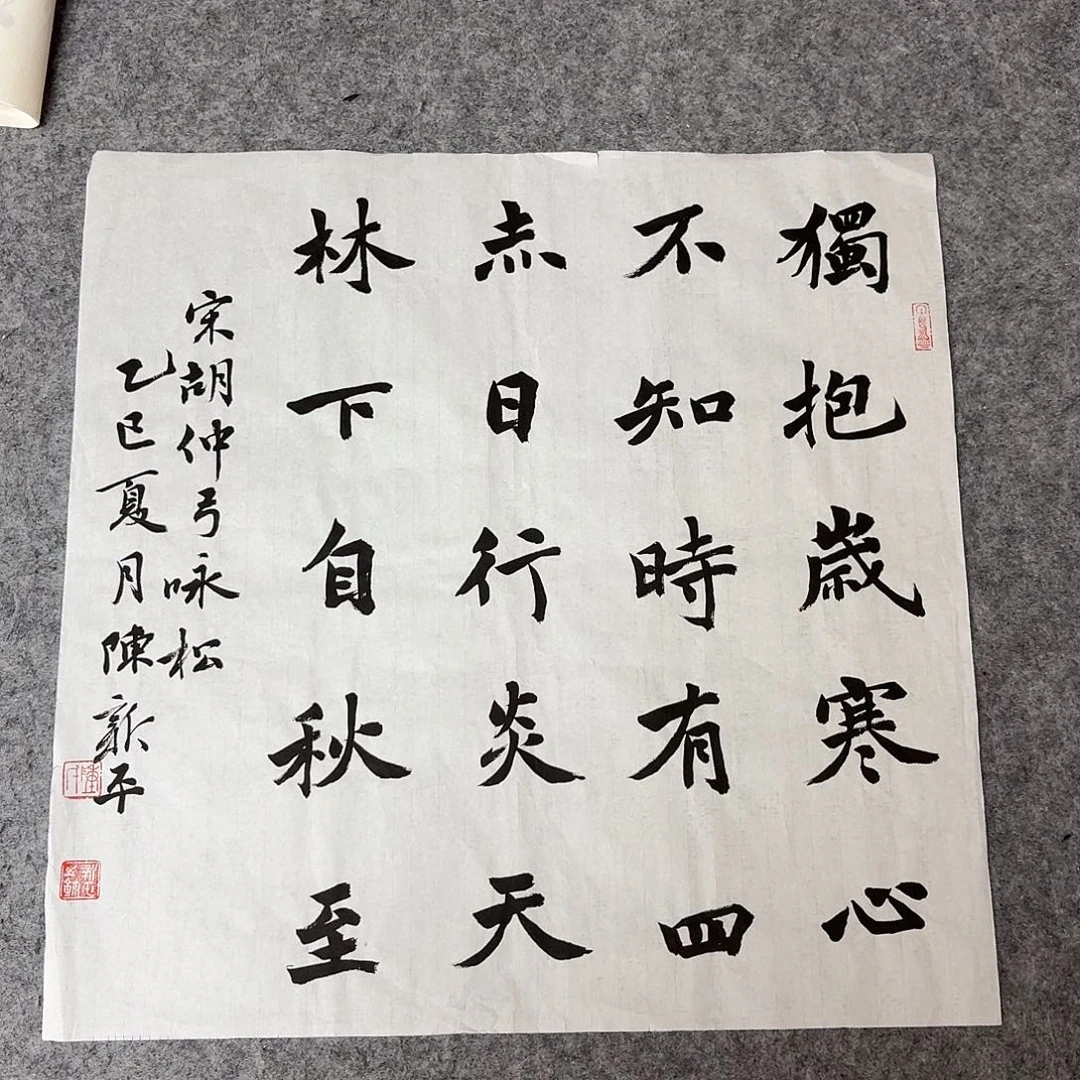 獨抱歲寒心
不知時有四
赤日行炎天
林下自秋至
宋胡仲弓咏松
乙巳夏月陳新平